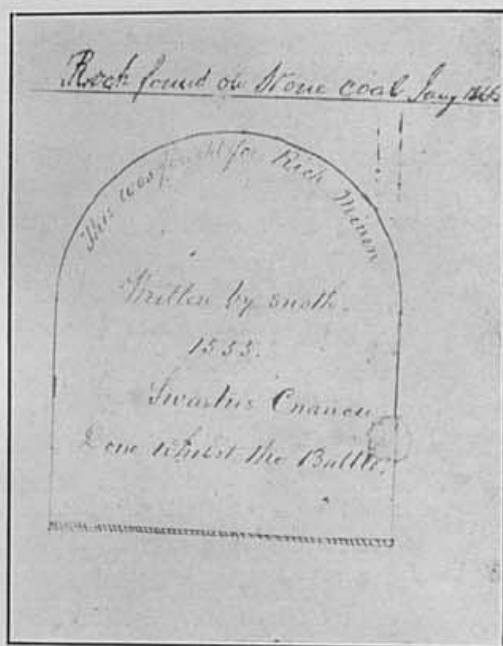 Rock found on Stone coal Jany
This was fought for Rich Minen
Written by snath.
1555.
Swashus Cnanou
Done whilst the Battle.